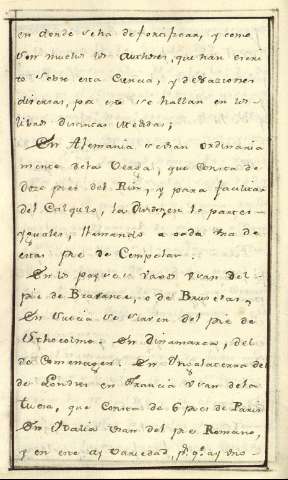 en donde se ha de fortificar, y como
son muchos los Authores, que han escri-
to sobre esta Ciencia, y de naciones
diversas, por eso se hallan en los
libros distintas medidas;
En Alemania se usan ordinaria
mente dela Verga, que consta de
doze pies del Rin, y para facilitar
del Calculo, la dividen en 10 partes
yguales, llamando a cada una de
estas pie de
En los payses vaxos usan del
pie de Bravante, o de Bruselas,
En Suecia se sirven del pie de
Stocolmo. En Dinamarca, del
de En Ynglaterra del
de Londres en Francia usan dela
tuesa, que consta de 6 pies de Paris
En Ytalia usan del pie Romano,
y en este ay variedad, pr. qe. ay uno-